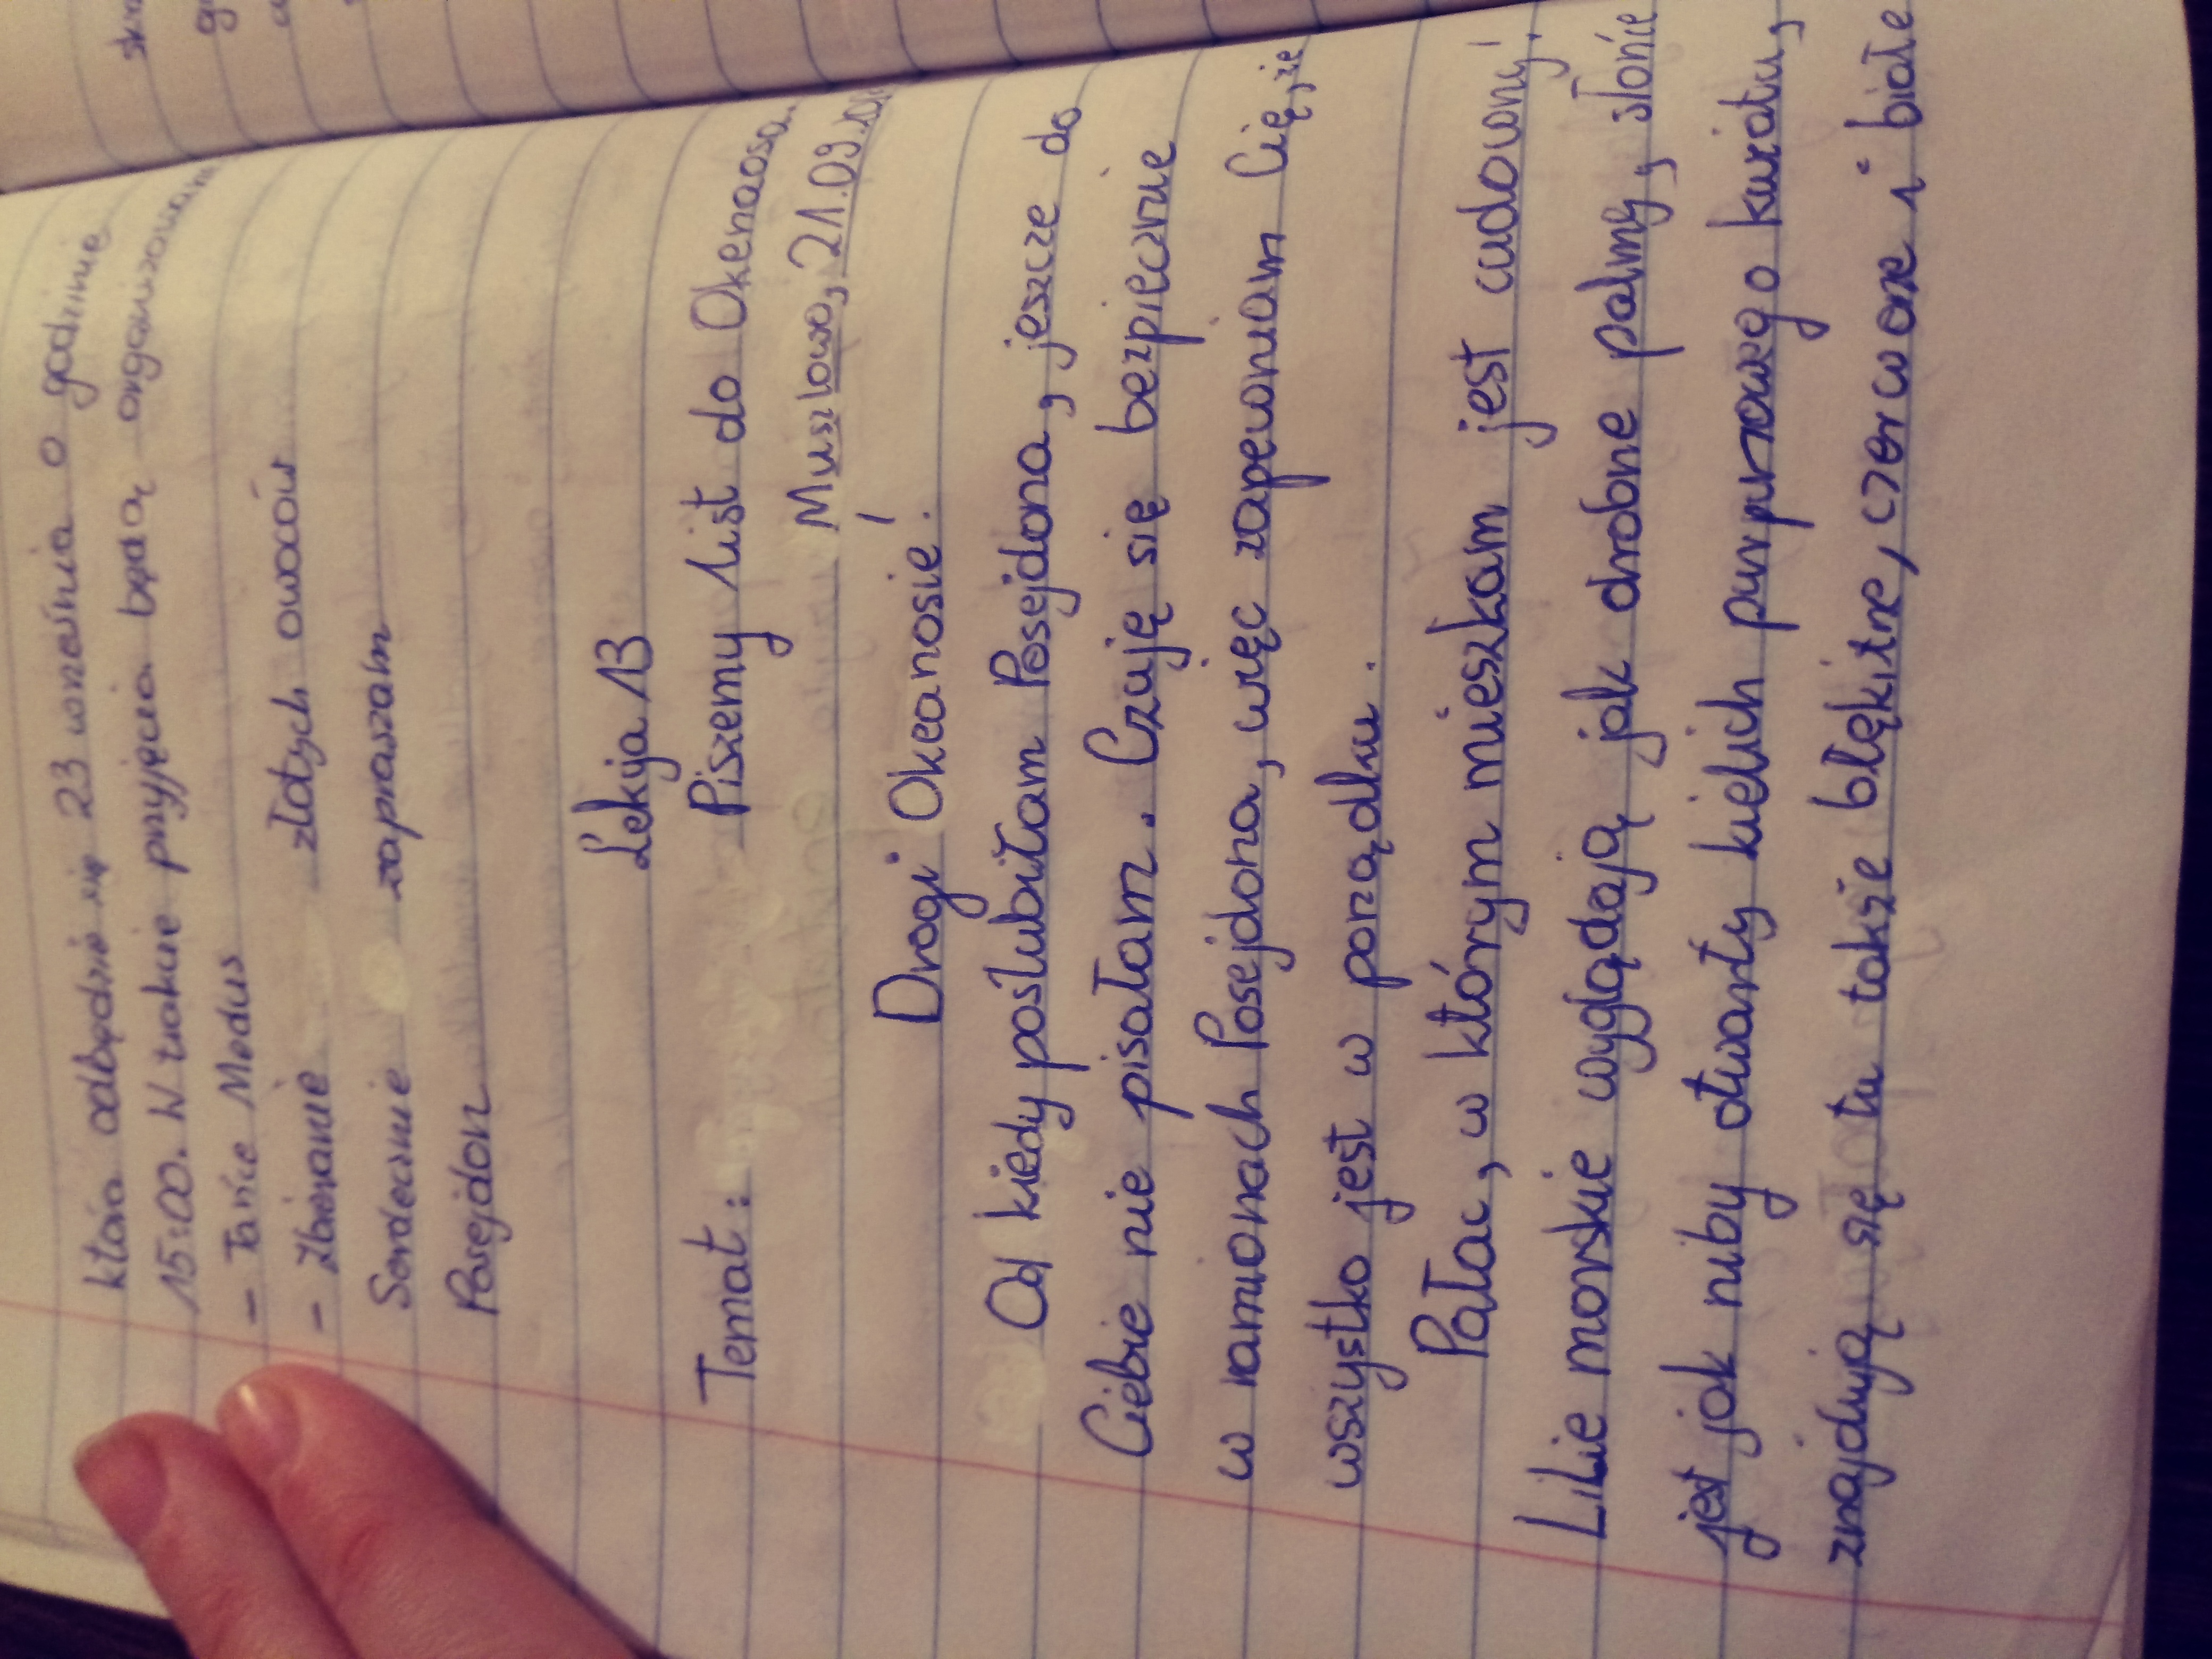 która odbędzie się 23 września o godzinie
15:00. W trakcie przyjęcia będą
- Tańce Meduz
- Zbieranie złotych owoców
Serdecznie zapraszam
Posejdon
Lekcja 13
Temat: Piszemy list do Okenaosa.
Muszlowo, 21.09.
Drogi Okeanosie!
Od kiedy poślubiłam Posejdona, jeszcze do
Ciebie nie pisałam. Czuję się bezpiecznie
w ramionach Posejdona, więc zapewniam Cię, że
wszystko jest w porządku.
Pałac, w którym mieszkam jest cudowny!
Lilie morskie wyglądają jak drobne palmy, słońce
jest jak niby otwarty kielich purpurowego kwiatu,
znajdują się tu także błękitne, czerwone i białe